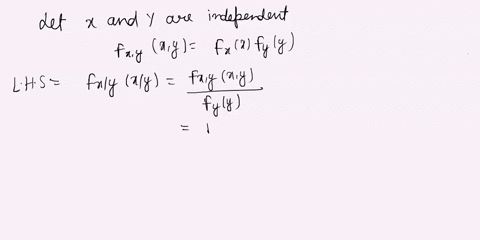 Let x and Y are independent
fx,y (x,y) = fx(x) fy(y)
L.H.S = fx/y (x/y) = fx,y (x,y) / fy(y)
=